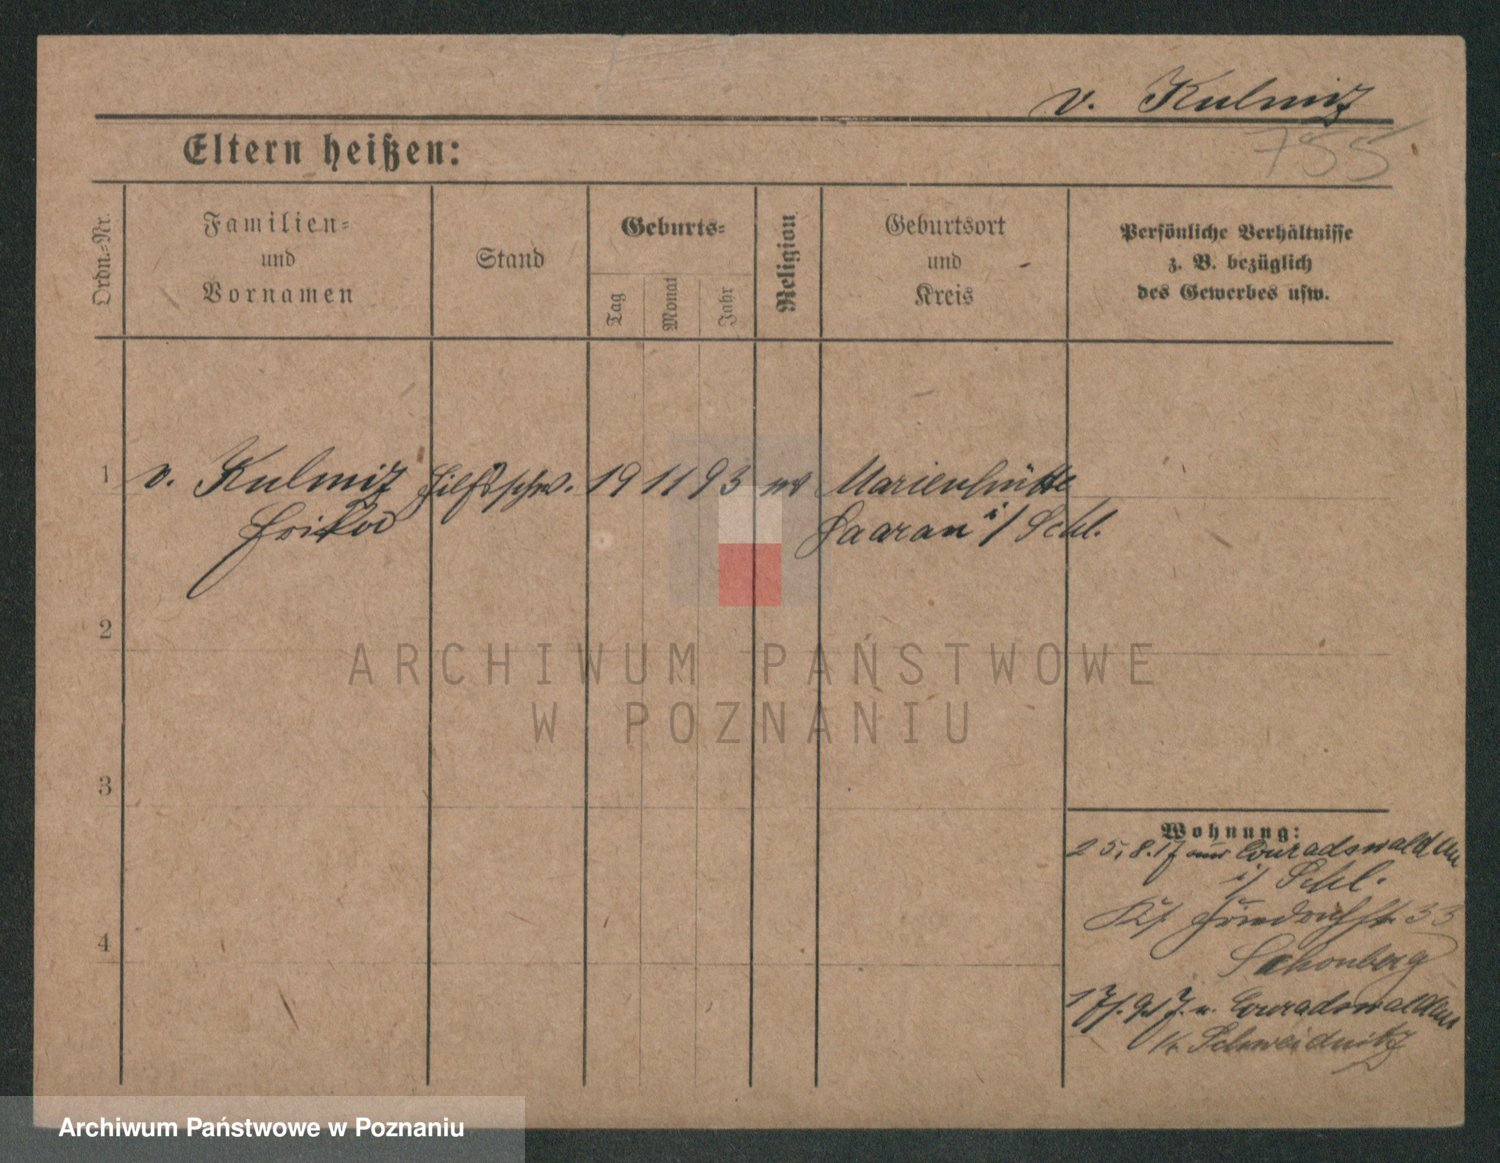 v. Kulmiz
755
Eltern heißen:
Ordn.-Nr.
Familien-
und
Vornamen
Stand
Geburts-
Tag
Monat
Jahr
Religion
Geburtsort
und
Kreis
Persönliche Verhältnisse
z. B. bezüglich
des Gewerbes usw.
1
v. Kulmiz
Hilfsschw.
19 11 93
Marienhütte
Saarau i/ Schl.
2
ARCHIWUM PAŃSTWOWE
W POZNANIU
3
Wohnung:
25.8.17 aus Conradswaldau
i/ Schl.
Friedrichstr. 33
Schonberg
17/.9.17. n. Conradswaldau
Kr. Schweidnitz
4
Archiwum Państwowe w Poznaniu